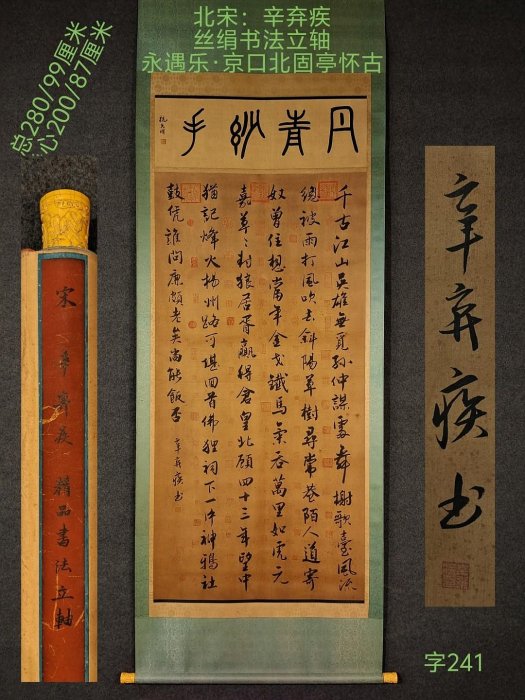 北宋：辛弃疾
丝绢书法立轴
永遇乐·京口北固亭怀古
总280/99厘米
心200/87厘米
丹青妙手
千古江山英雄無覓孫仲謀處舞榭歌臺風流
總被雨打風吹去斜陽草樹尋常巷陌人道寄
奴曾住想當年金戈鐵馬氣吞萬里如虎元
嘉草〻封狼居胥贏得倉皇北顧四十三年望中
猶記烽火揚州路可堪回首佛狸祠下一片神鴉社
鼓凭誰問廉頗老矣尚能飯否
辛弃疾书
宋 辛弃疾 精品書法立軸
辛弃疾书
字241